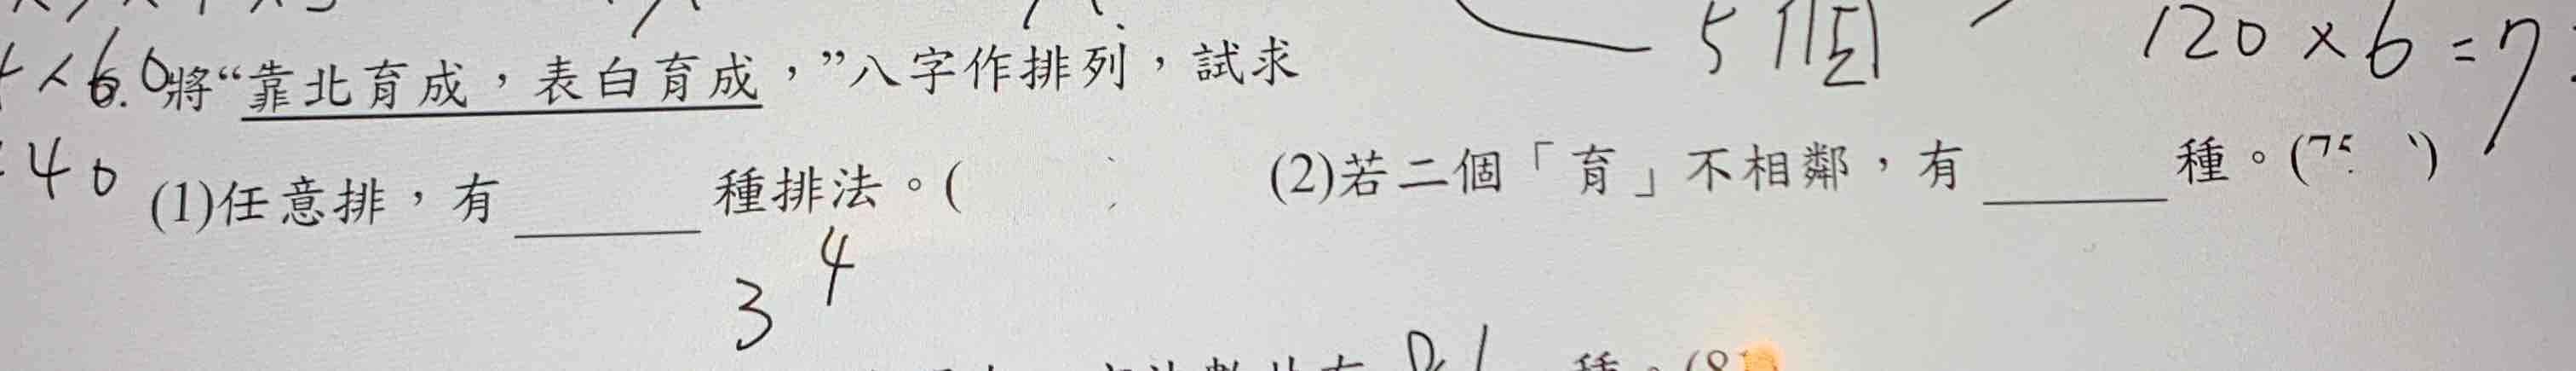 5個
120×6=7
6.將“靠北育成，表白育成，”八字作排列，試求
40
(1)任意排，有 種排法。( (2)若二個「育」不相鄰，有 種。(75 )
3 4